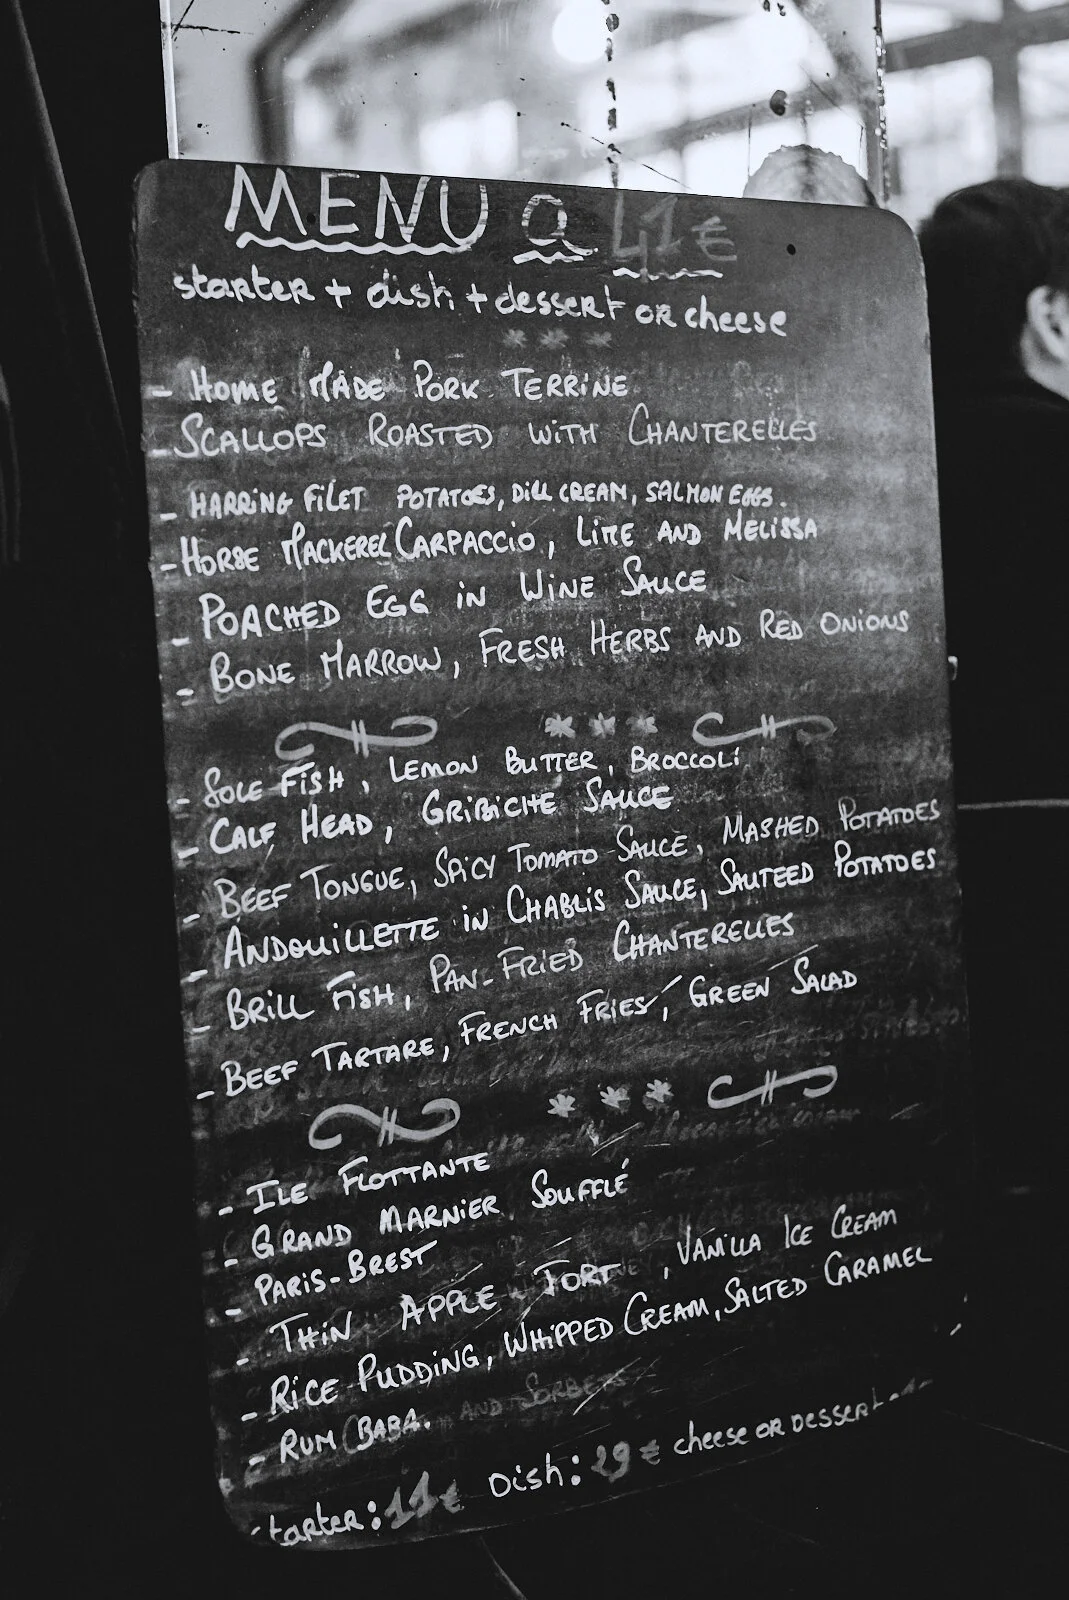 MENU a 41€
starter + dish + dessert OR cheese
- HOME MADE PORK TERRINE
- SCALLOPS ROASTED WITH CHANTERELLES
- HARRING FILET POTATOES, DILL CREAM, SALMON EGGS.
- HORSE MACKEREL CARPACCIO, LIME AND MELISSA
- POACHED EGG IN WINE SAUCE
- BONE MARROW, FRESH HERBS AND RED ONIONS
- SOLE FISH, LEMON BUTTER, BROCCOLI
- CALF HEAD, GRIBICHE SAUCE
- BEEF TONGUE, SPICY TOMATO SAUCE, MASHED POTATOES
- ANDOUILLETTE IN CHABLIS SAUCE, SAUTEED POTATOES
- BRILL FISH, PAN-FRIED CHANTERELLES
- BEEF TARTARE, FRENCH FRIES, GREEN SALAD
- ILE FLOTTANTE
- GRAND MARNIER SOUFFLÉ
- PARIS-BREST
- THIN APPLE TORT, VANILLA ICE CREAM
- RICE PUDDING, WHIPPED CREAM, SALTED CARAMEL
- RUM BABA. AND SORBETS
tarter: 11€ Dish: 29€ cheese OR DESSERT